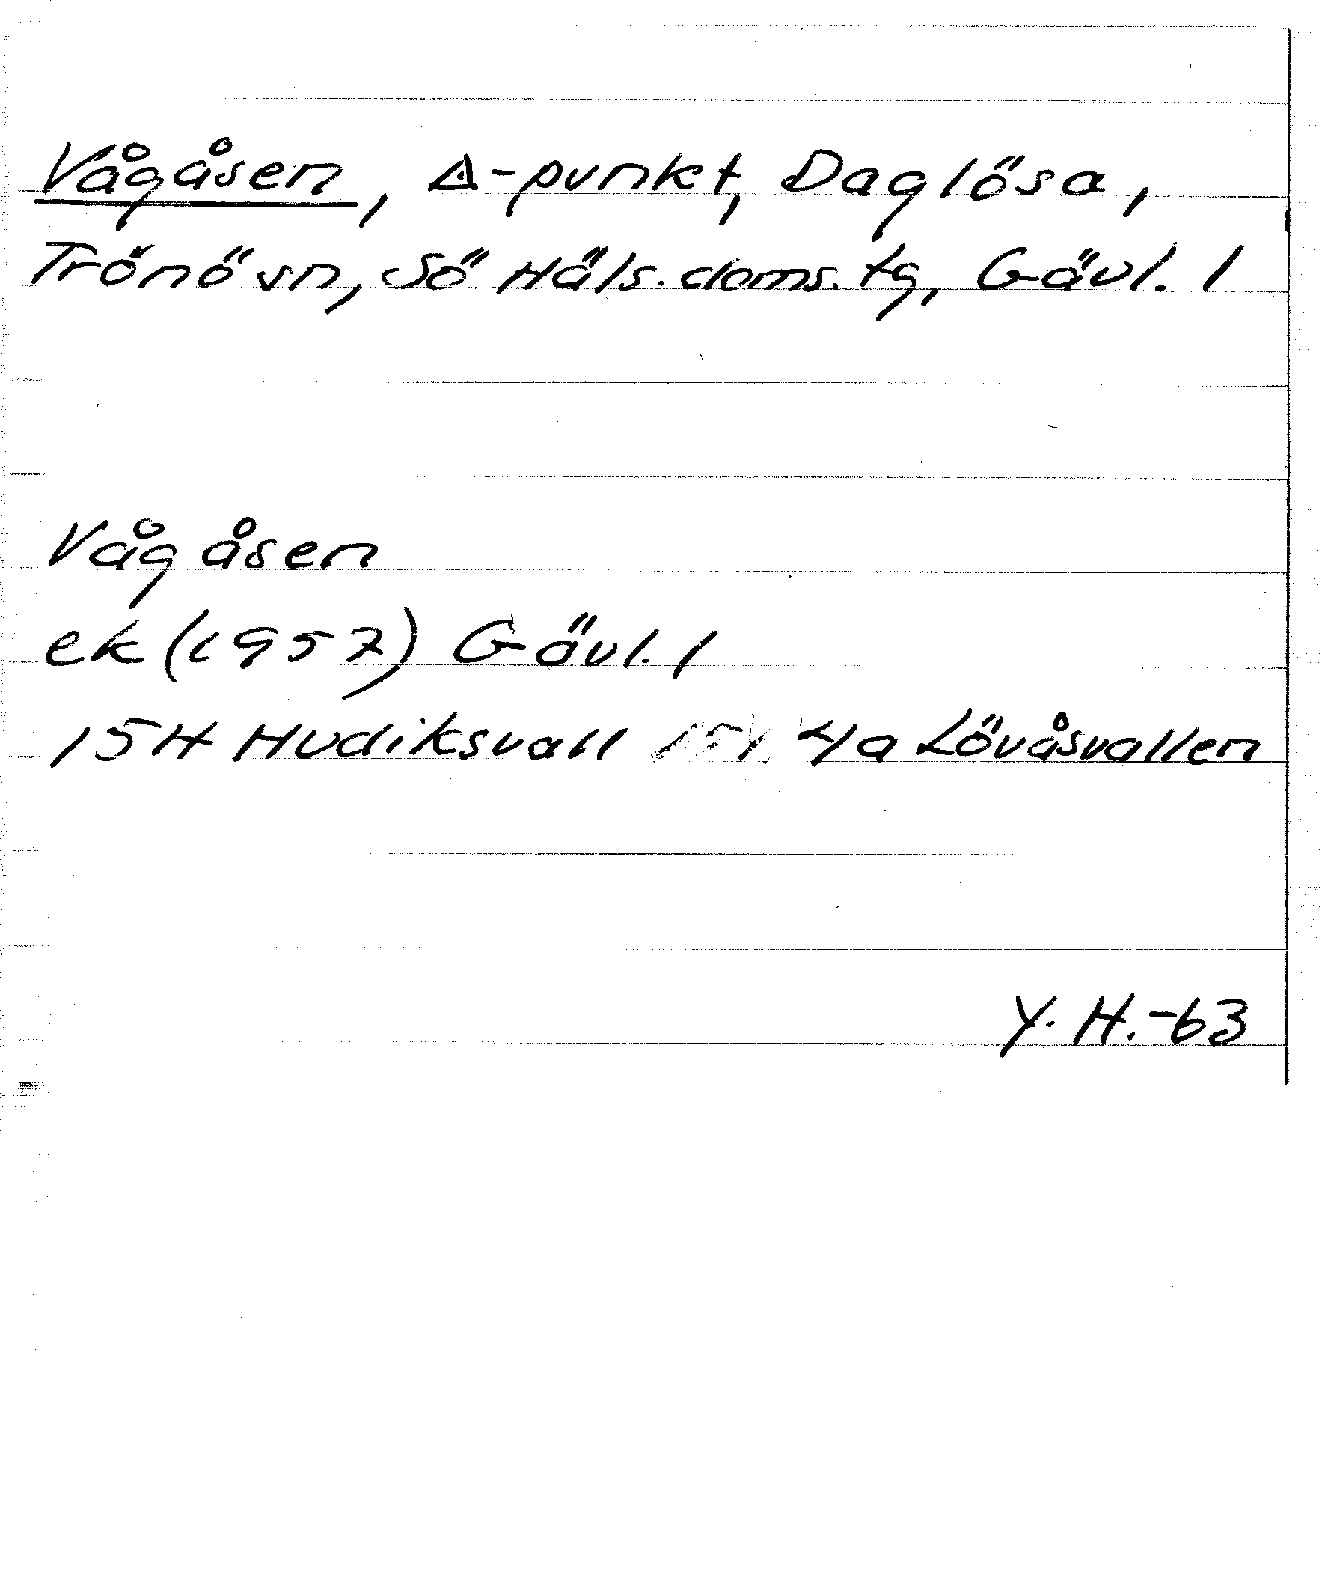 Vågåsen, Δ-punkt, Daglösa,
Trönö sn, Sö Häls. doms. tg, Gävl. l
Vågåsen
ek (1957) Gävl. l
15H Hudiksvall 4a Lövåsvallen
Y. H. -63